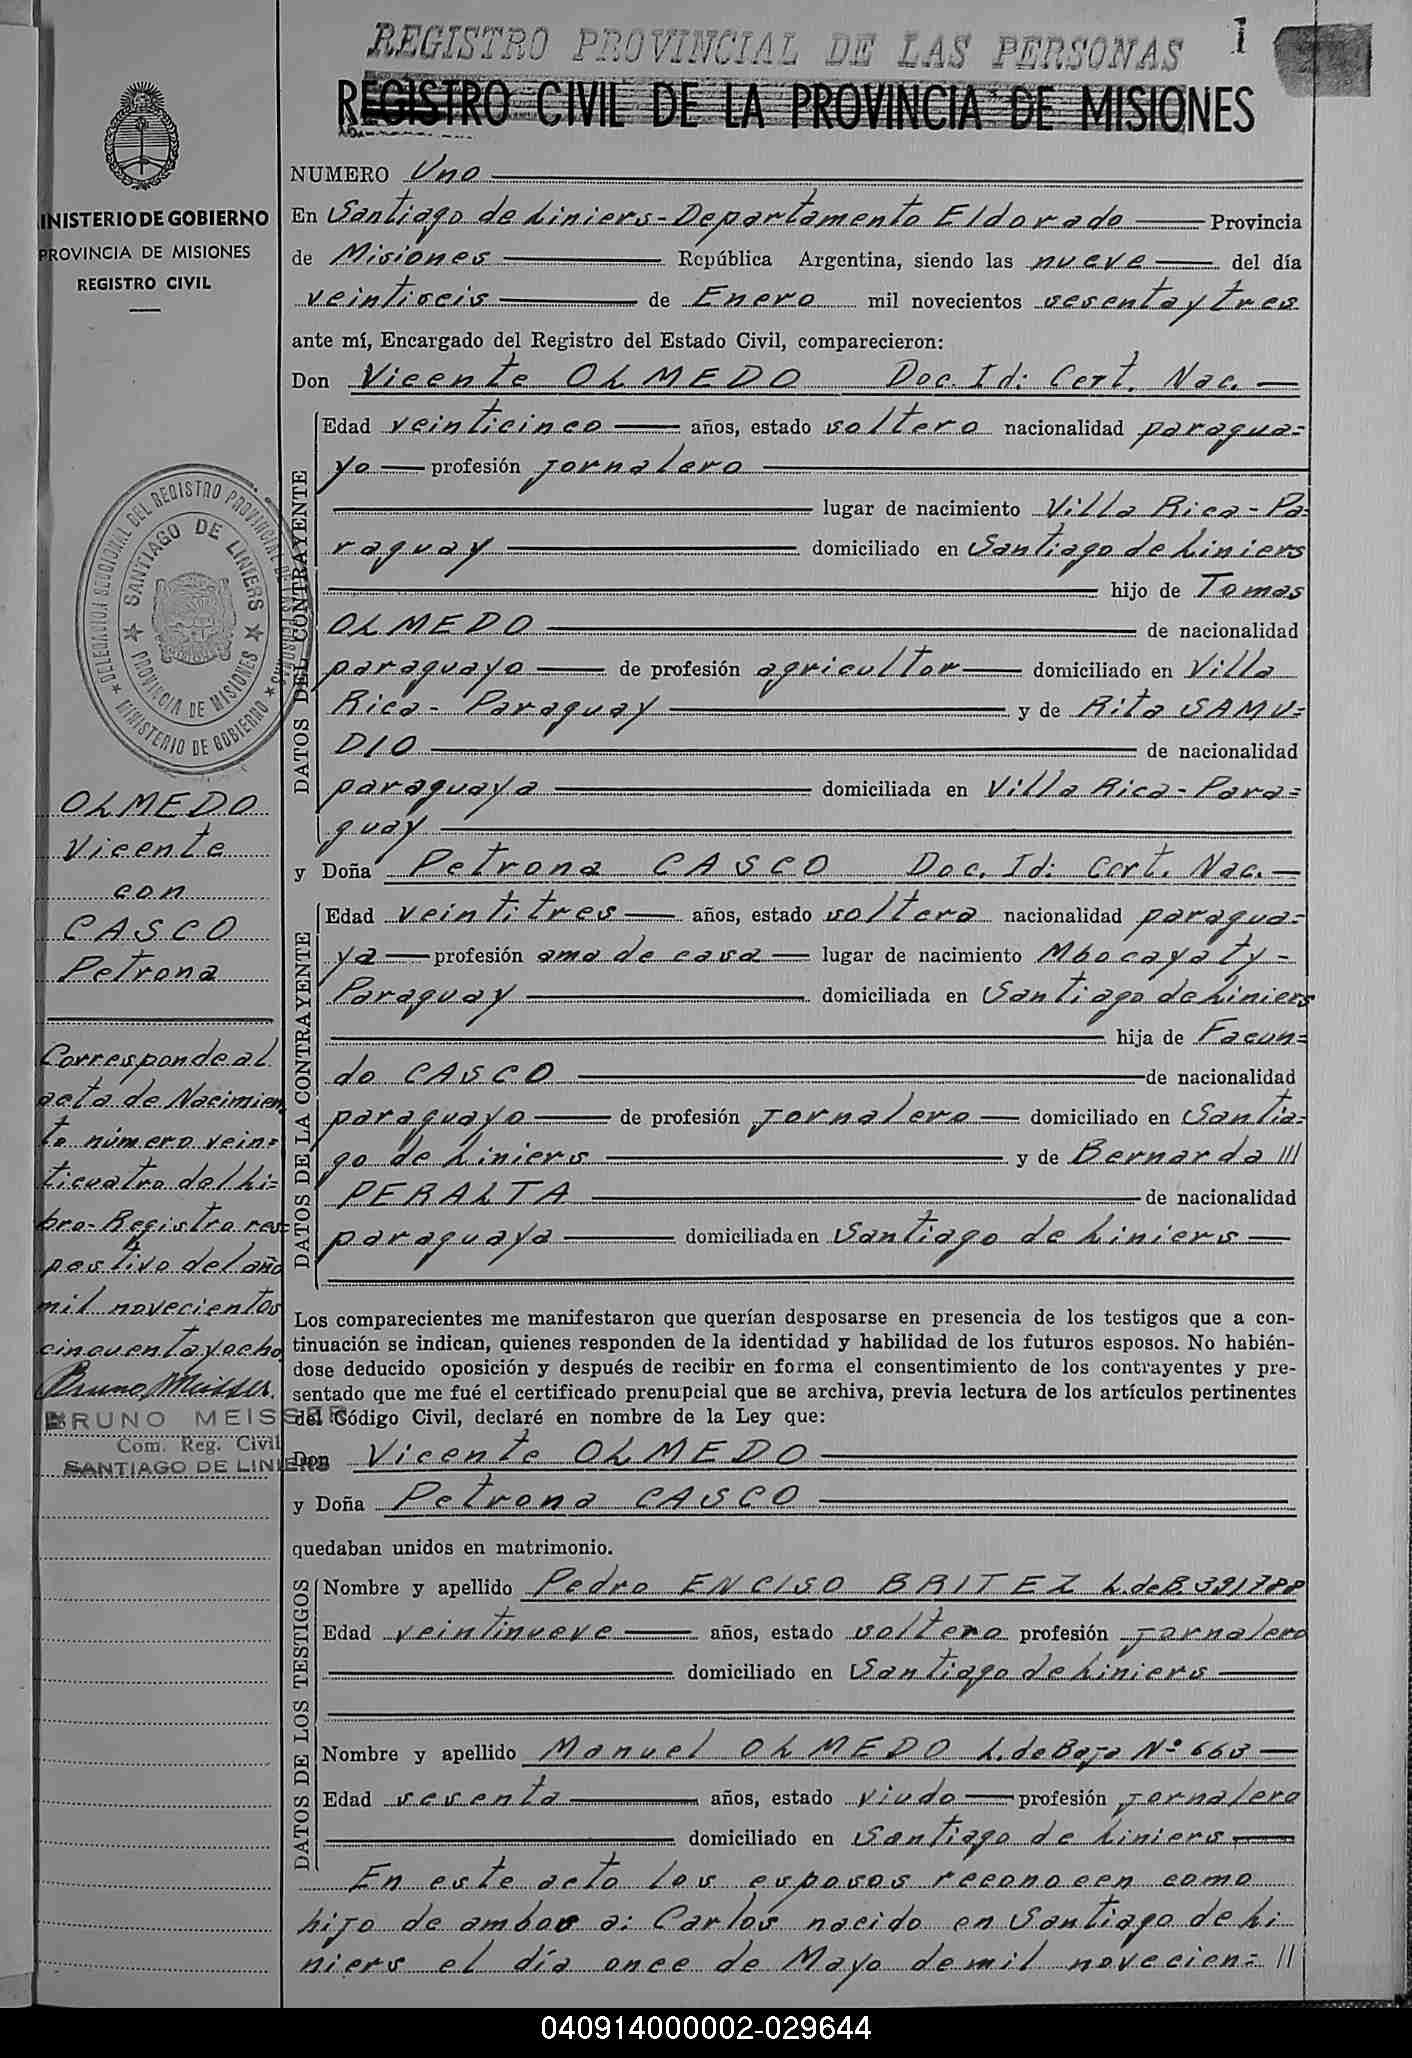 REGISTRO PROVINCIAL DE LAS PERSONAS
1
REGISTRO CIVIL DE LA PROVINCIA DE MISIONES
MINISTERIO DE GOBIERNO
PROVINCIA DE MISIONES
REGISTRO CIVIL
DELEGACION SECCIONAL DEL REGISTRO PROVINCIAL DE LAS PERSONAS
SANTIAGO DE LINIERS
PROVINCIA DE MISIONES
MINISTERIO DE GOBIERNO
OLMEDO
Vicente
con
CASCO
Petrona
Corresponde al
acta de Nacimien
to número vein=
ticuatro del Li=
bro-Registro res=
pectivo del año
mil novecientos
cincuenta y ocho
Bruno Meisser
BRUNO MEISSER
Com. Reg. Civil
SANTIAGO DE LINIERS
NUMERO Uno
En Santiago de Liniers-Departamento Eldorado Provincia
de Misiones República Argentina, siendo las nueve del día
veintiseis de Enero mil novecientos sesenta y tres
ante mí, Encargado del Registro del Estado Civil, comparecieron:
Don Vicente OLMEDO Doc. Id: Cert. Nac.
DATOS DEL CONTRAYENTE
Edad veinticinco años, estado soltero nacionalidad paragua=
yo profesión jornalero
lugar de nacimiento Villa Rica-Pa=
raguay domiciliado en Santiago de Liniers
hijo de Tomas
OLMEDO de nacionalidad
paraguayo de profesión agricultor domiciliado en Villa
Rica- Paraguay y de Rita SAMU=
DIO de nacionalidad
paraguaya domiciliada en Villa Rica-Para=
guay
y Doña Petrona CASCO Doc. Id: Cert. Nac.
DATOS DE LA CONTRAYENTE
Edad veintitres años, estado soltera nacionalidad paragua=
ya profesión ama de casa lugar de nacimiento Mbocayaty-
Paraguay domiciliada en Santiago de Liniers
hija de Facun=
do CASCO de nacionalidad
paraguayo de profesión jornalero domiciliado en Santia=
go de Liniers y de Bernarda ///
PERALTA de nacionalidad
paraguaya domiciliada en Santiago de Liniers
Los comparecientes me manifestaron que querían desposarse en presencia de los testigos que a con-
tinuación se indican, quienes responden de la identidad y habilidad de los futuros esposos. No habién-
dose deducido oposición y después de recibir en forma el consentimiento de los contrayentes y pre-
sentado que me fué el certificado prenupcial que se archiva, previa lectura de los artículos pertinentes
del Código Civil, declaré en nombre de la Ley que:
Don Vicente OLMEDO
y Doña Petrona CASCO
quedaban unidos en matrimonio.
DATOS DE LOS TESTIGOS
Nombre y apellido Pedro ENCISO BRITEZ L.de B. 391788
Edad veintinueve años, estado soltero profesión jornalero
domiciliado en Santiago de Liniers
Nombre y apellido Manuel OLMEDO L. de Baja Nº 663
Edad sesenta años, estado viudo profesión jornalero
domiciliado en Santiago de Liniers
En este acto los esposos reconocen como
hijo de ambos a: Carlos nacido en Santiago de Li
niers el día once de Mayo de mil novecien= //
040914000002-029644